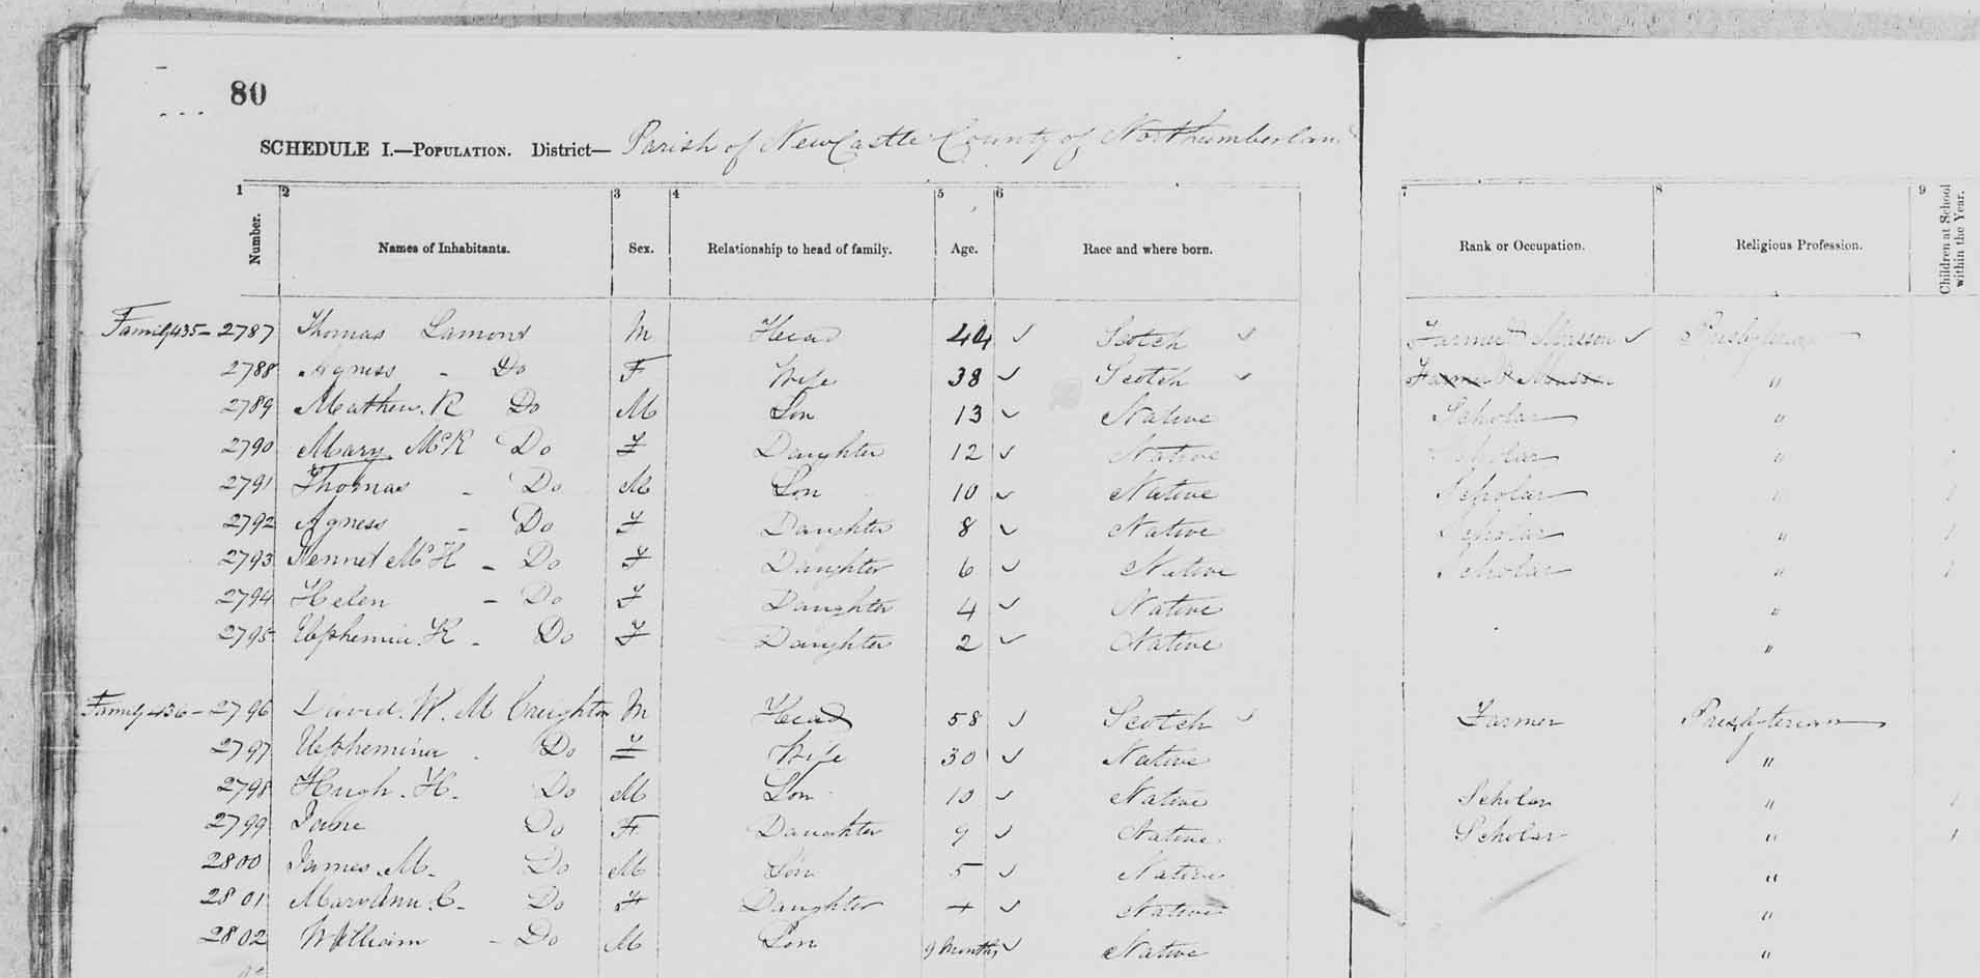 80
SCHEDULE I.—POPULATION. District— Parish of NewCastle County of Northumberland
1 2 3 4 5 6 7 8 9
Number. Names of Inhabitants. Sex. Relationship to head of family. Age. Race and where born. Rank or Occupation. Religious Profession. Children at School within the Year.
Family 435 - 2787 Thomas Lamont M Head 44 ✓ Scotch ✓ Farmer & Mason ✓ Presbyterian
2788 Agness - Do F Wife 38 ✓ Scotch ✓ Farmer & Mason "
2789 Mathew. R Do M Son 13 ✓ Native Scholar "
2790 Mary McK Do F Daughter 12 ✓ Native Scholar "
2791 Thomas - Do M Son 10 ✓ Native Scholar " 1
2792 Agness - Do F Daughter 8 ✓ Native Scholar " 1
2793 Jennet McH - Do F Daughter 6 ✓ Native Scholar " 1
2794 Helen - Do F Daughter 4 ✓ Native "
2795 Uphemia. H - Do F Daughter 2 ✓ Native "
Family 436 - 2796 David. W. M Creighton M Head 58 ✓ Scotch ✓ Farmer Presbyterian
2797 Uphemina Do F Wife 30 ✓ Native "
2798 Hugh. H. Do M Son 10 ✓ Native Scholar " 1
2799 Jane Do F Daughter 9 ✓ Native Scholar " 1
2800 James. M. Do M Son 5 ✓ Native "
2801 Mary Ann. C- Do F Daughter ✓ Native "
2802 William - Do M Son 9 Months ✓ Native "